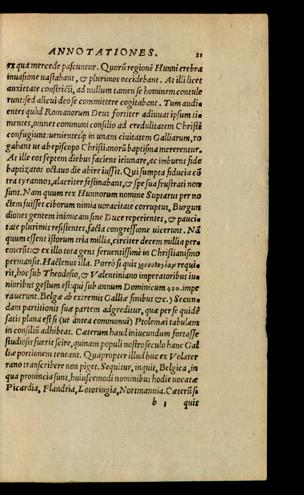 ANNOTATIONES. 21
ex qua mercede pascuntur. Quorũ regionẽ Hunni crebra
inuasione uastabant, & plurimos occidebant. At illi licet
anxietate constricti, ad nullum tamen se hominem contule
runt: sed alicui deo se committere cogitabant. Tum audi
entes quòd Romanorum Deus fortiter adiuuat ipsum ti=
mentes, omnes communi consilio ad credulitatem Christi
confugiunt: uenientesq́; in unam ciuitatem Galliarum, ro
gabant ut ab episcopo Christianorũ baptisma mererentur.
At ille eos septem diebus faciens ieiunare, ac imburẽs fide
baptizatos octauo die abire iussit. Qui sumpta fiducia cõ
tra tyrannos, alacriter festinabant, & spe sua frustrati non
sunt. Nam quum rex Hunnorum nomine Suptarus per no
ctem fuisset ciborum nimia uoracitate corruptus, Burgun
diones gentem inimicam sine Duce reperientes, & pauci=
tate plurimis resistentes, facta congressione uicerunt. Nã
quum essent istorum tria millia, circiter decem millia per=
emerũt: & ex illo tota gens feruentissimè in Christianismo
permansit. Hactenus illa. Porrò si quis requi
rit, hoc sub Theodosio, & Valentiniano imperatoribus iu=
nioribus gestum est: qui sub annum Dominicum 420. impe
rauerunt. Belgæ ab extremis Galliæ finibus &c.) Secun=
dam partitionis suæ partem adgreditur, quæ per se quidẽ
satis plana est, si (ut antea commonui) Ptolemæi tabulam
in consiliũ adhibeat. Cæterum haud iniucundum fortasse
studiosis fuerit scire, quinam populi nostro seculo hanc Gal
liæ portionem teneant. Quapropter illud huc ex Volater
rano transcribere non piget. Sequitur, inquit, Belgica, in
qua prouincia sunt, huiuscemodi nominibus hodie uocatæ
Picardia, Flandria, Lotoringia, Nortmannia. Cæterũ si
b 3 quis